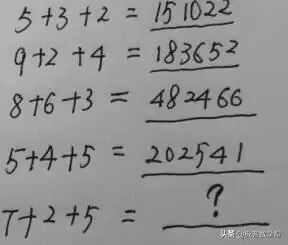 5+3+2 = 151022
9+2+4 = 183652
8+6+3 = 482466
5+4+5 = 202541
7+2+5 = ?
头条 @极客数学帮